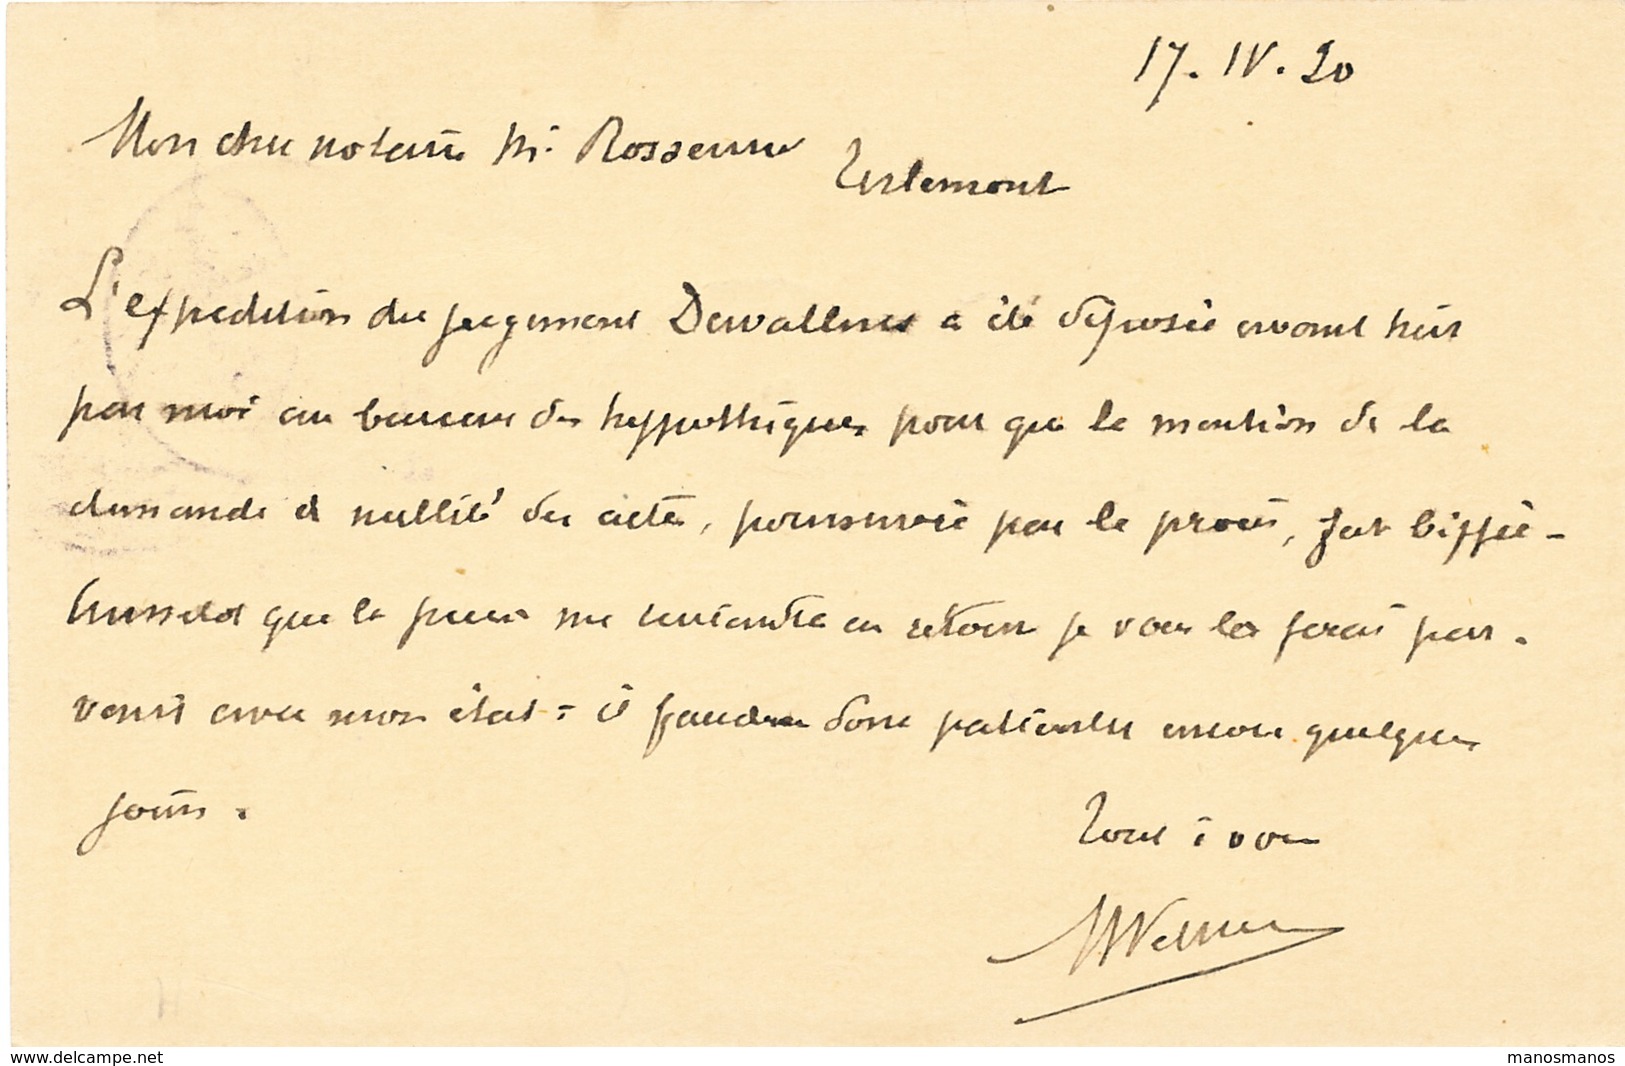 17. IV. 20
Mon cher notaire M. Rosseeuw
Tirlemont
L'expédition du jugement Dewallens a été déposée avant hier
par moi au bureau des hypothèques pour que la mention de la
demande de nullité des actes, poursuivie par le procès, fut biffée -
que la pièce me rentrée en retour je vous la ferai par-
venir avec mon état : il faudra donc patienter encore quelques
jours.
Tout à vous
www.delcampe.net
manosmanos